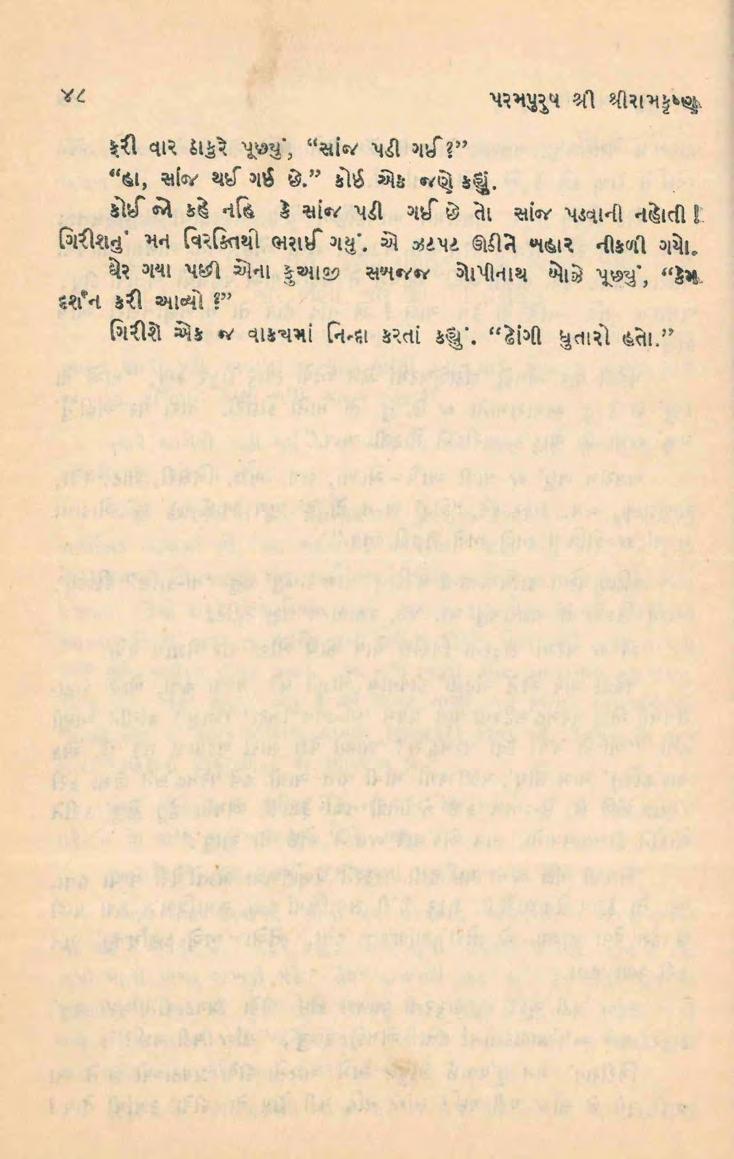 ૪૮
પરમપુરુષ શ્રી શ્રીરામકૃષ્ણ
ફરી વાર ઠાકુરે પૂછ્યું, “સાંજ પડી ગઈ ?”
“હા, સાંજ થઈ ગઈ છે.” કોઈ એક જણે કહ્યું.
કોઈ જો કહે નહિ કે સાંજ પડી ગઈ છે તો સાંજ પડવાની નહોતી !
ગિરીશનું મન વિરક્તિથી ભરાઈ ગયું. એ ઝટપટ ઊઠીને બહાર નીકળી ગયો.
ઘેર ગયા પછી એના ફુઆજી સબજજ ગોપીનાથ બોઝે પૂછ્યું, “કેમ
દર્શન કરી આવ્યો ?”
ગિરીશે એક જ વાક્યમાં નિન્દા કરતાં કહ્યું. “ઢોંગી ધુતારો હતો.”